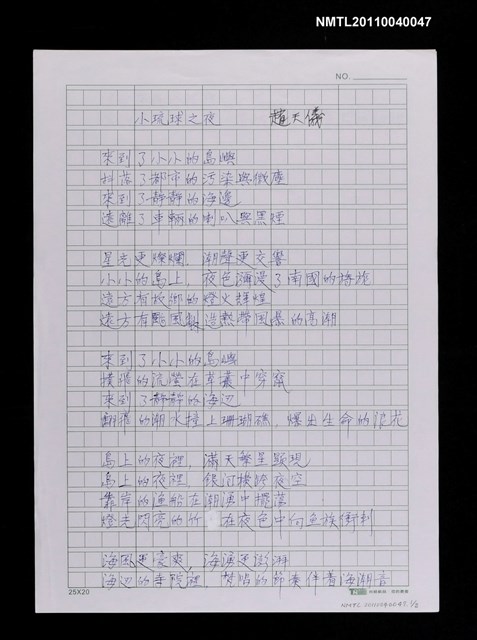 NMTL20110040047
NO.
小琉球之夜 趙天儀
來到了小小的島嶼
抖落了都市的污染與微塵
來到了靜靜的海邊
遠離了車輛的喇叭與黑煙
星光更燦爛，潮聲更交響
小小的島上，夜色瀰漫了南國的旖旎
遠方有故鄉的燈火輝煌
遠方有颱風製造熱帶風暴的高潮
來到了小小的島嶼
撲撲的流螢在草叢中穿竄
來到了靜靜的海邊
翻捲的潮水撞上珊瑚礁，爆出生命的浪花
島上的夜裡，滿天繁星顯現
島上的夜裡，銀河橫跨夜空
靠岸的漁船在潮湧中擺盪
燈光閃亮的竹 在夜色中向魚族衝刺
海風更豪爽，海湧更澎湃
海邊的寺院裡，梵唱的節奏伴著海潮音
25X20
NMTL 20110040047 1/2